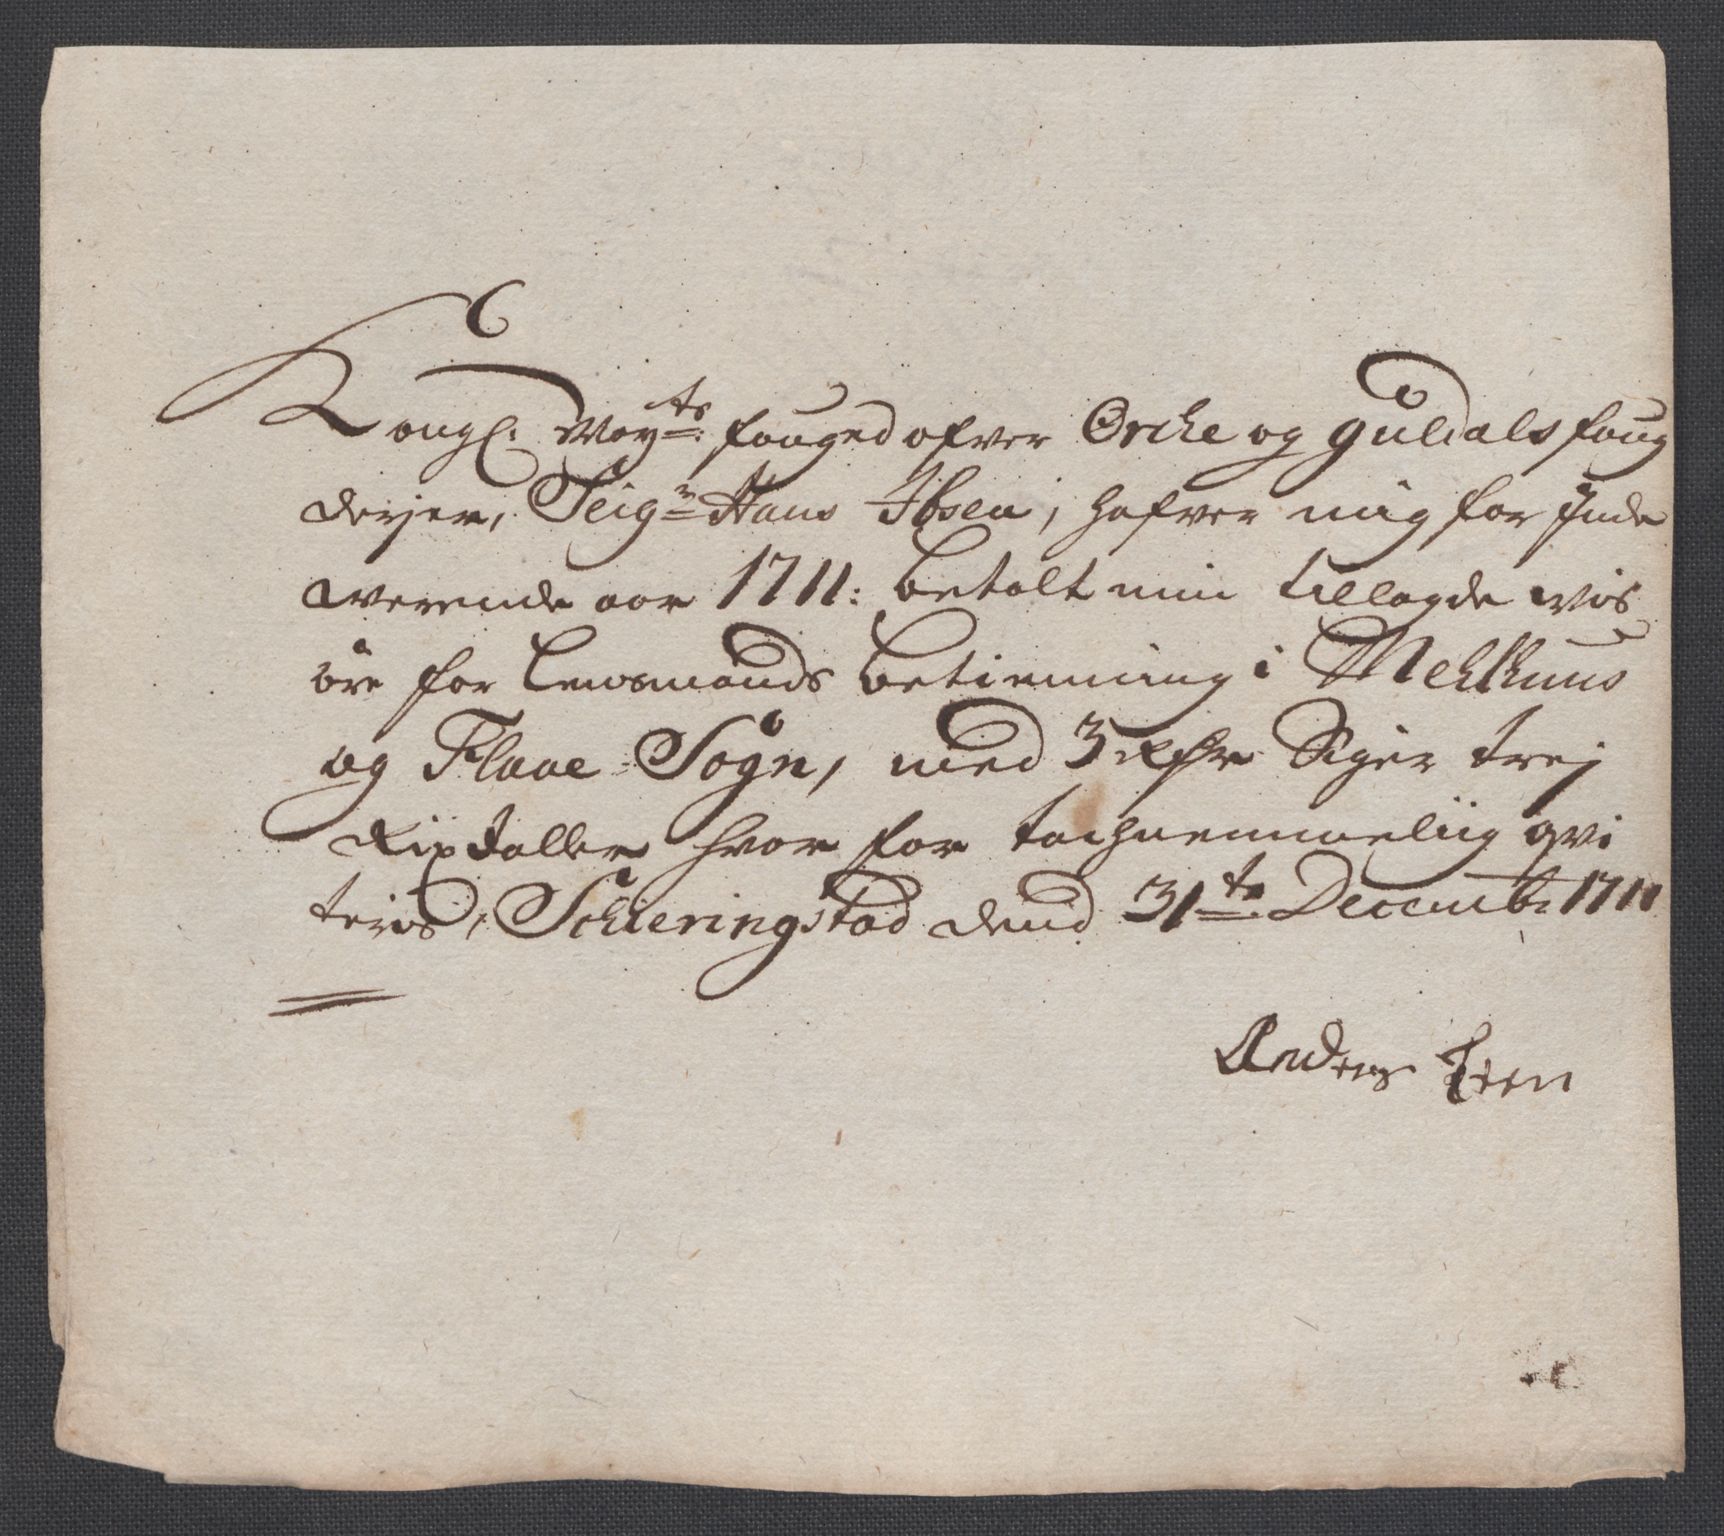 Kongl: May:ts fouged ofver Orche og Guldals foug
derjer, Seig:r Hans Ibsen, hafver mig for Inde
werende aar 1711: betalt min tillagde vis
øre for Lensmands betienning i Mehlhuus
og Flaae Sogn, med 3 Rdr Siger trej
Rixdaller hvor for tachnemmeliig qvi
teris, Schieringstad dend 31te Decemb: 1711
Anders